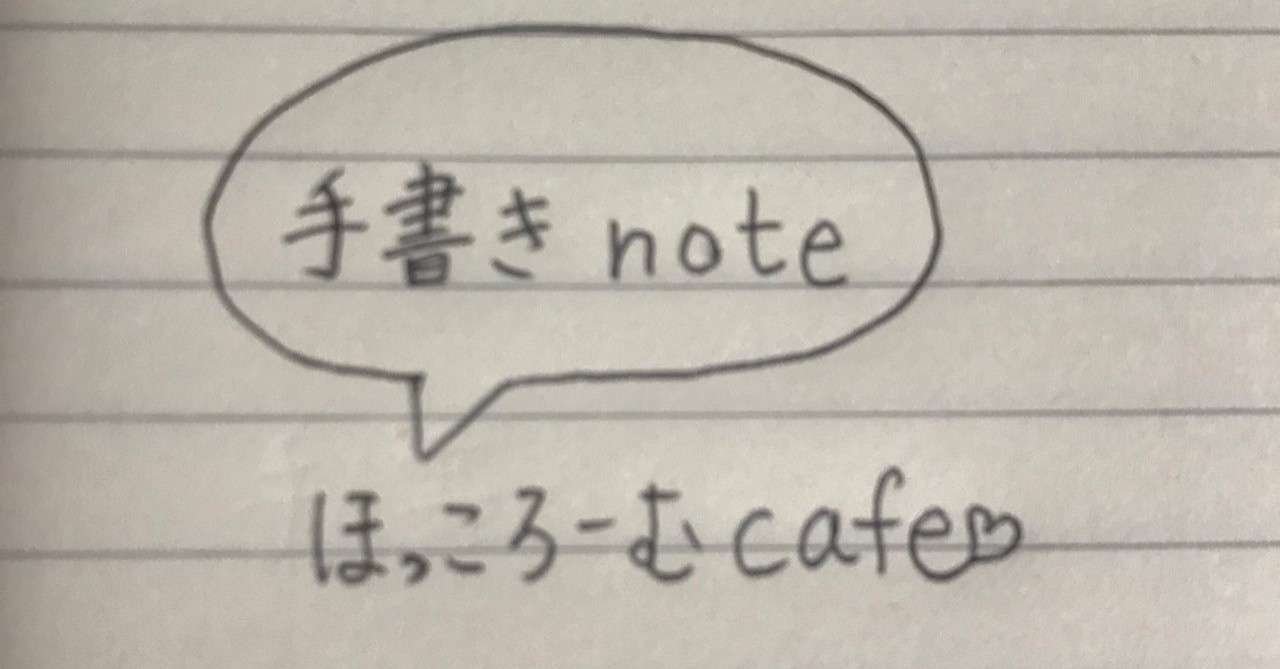 手書きnote
ほっころーむcafe♡